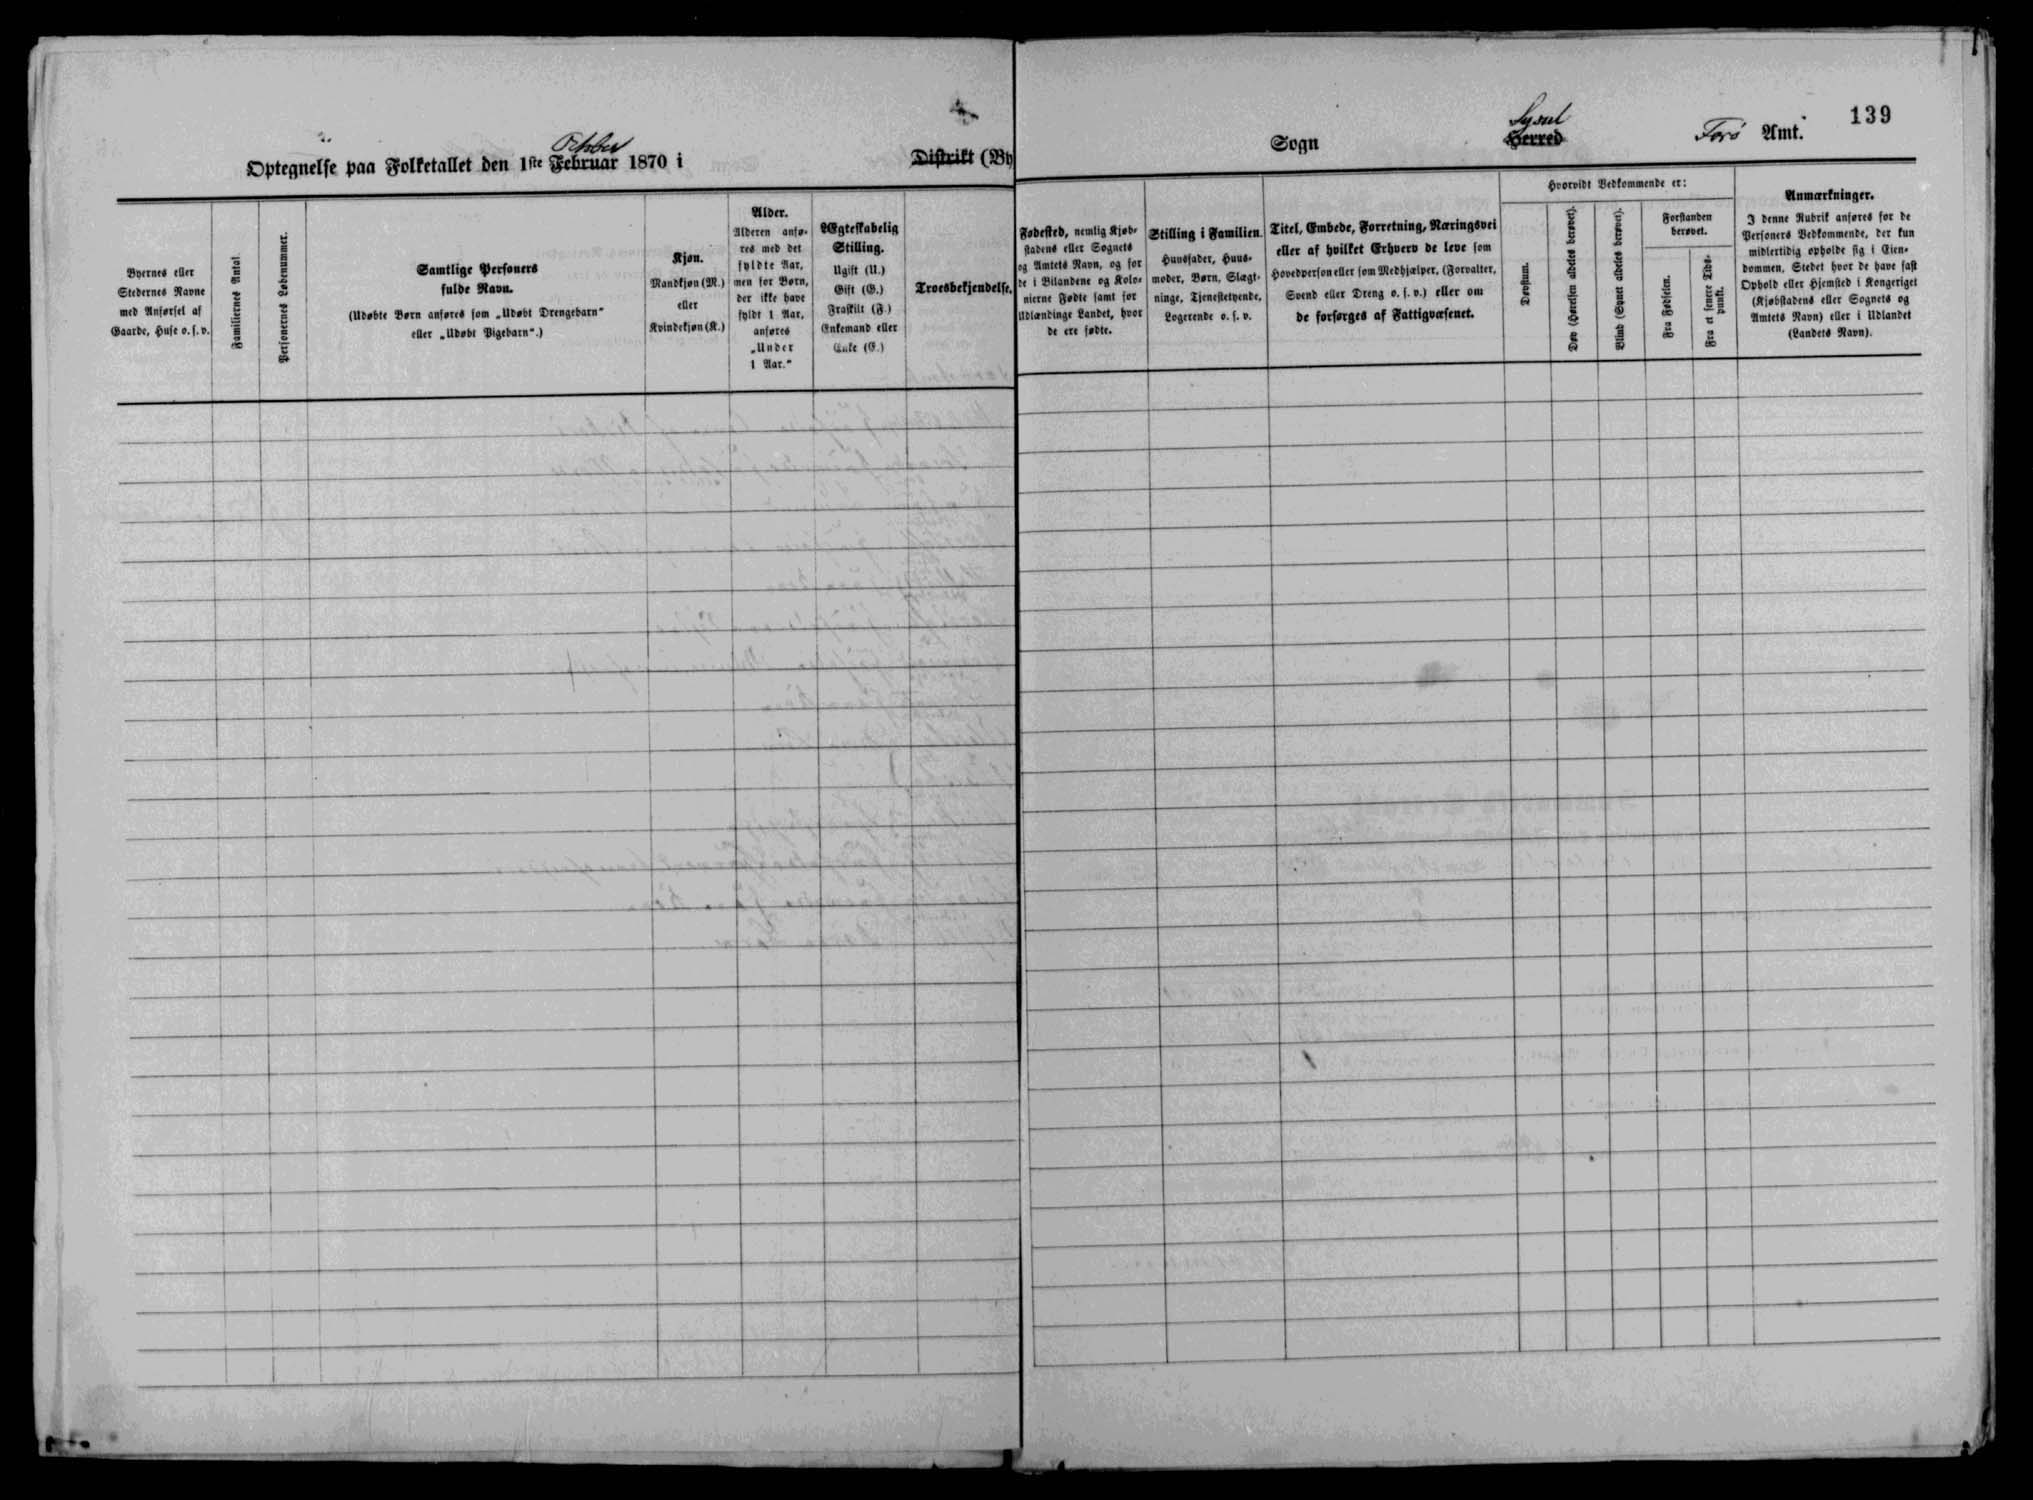 139
Octbr
Optegnelse paa Folketallet den 1ste Februar 1870 i
Distrikt (By
Sogn
Sysel
Herred
Færø Amt.
Byernes eller
Stedernes Navne
med Anførsel af
Gaarde, Huse o. s. v.
Familiernes Antal.
Personernes Løbenummer.
Samtlige Personers
fulde Navn.
(Udøbte Børn anføres som „Udøbt Drengebarn“
eller „Udøbt Pigebarn“.)
Kjøn.
Mandkjøn (M.)
eller
Kvindekjøn (K.)
Alder.
Alderen anfø-
res med det
fyldte Aar,
men for Børn,
der ikke have
fyldt 1 Aar,
anføres
„Under
1 Aar.“
Ægteskabelig
Stilling.
Ugift (U.)
Gift (G.)
Fraskilt (F.)
Enkemand eller
Enke (E.)
Troesbekjendelse.
Fødested, nemlig Kjøb-
stadens eller Sognets
og Amtets Navn, og for
de i Bilandene og Kolo-
nierne Fødte samt for
Udlændinge Landet, hvor
de ere fødte.
Stilling i Familien.
Huusfader, Huus-
moder, Børn, Slægt-
ninge, Tjenestetyende,
Logerende o. s. v.
Titel, Embede, Forretning, Næringsvei
eller af hvilket Erhverv de leve som
Hovedperson eller som Medhjælper, (Forvalter,
Svend eller Dreng o. s. v.) eller om
de forsørges af Fattigvæsenet.
Hvorvidt Vedkommende er:
Døvstum.
Døv (Hørelsen aldeles berøvet).
Blind (Synet aldeles berøvet).
Forstanden
berøvet.
Fra Fødselen.
Fra et senere Tids-
punkt.
Anmærkninger.
I denne Rubrik anføres for de
Personers Vedkommende, der kun
midlertidig opholde sig i Eien-
dommen, Stedet hvor de have fast
Ophold eller Hjemsted i Kongeriget
(Kjøbstadens eller Sognets og
Amtets Navn) eller i Udlandet
(Landets Navn).